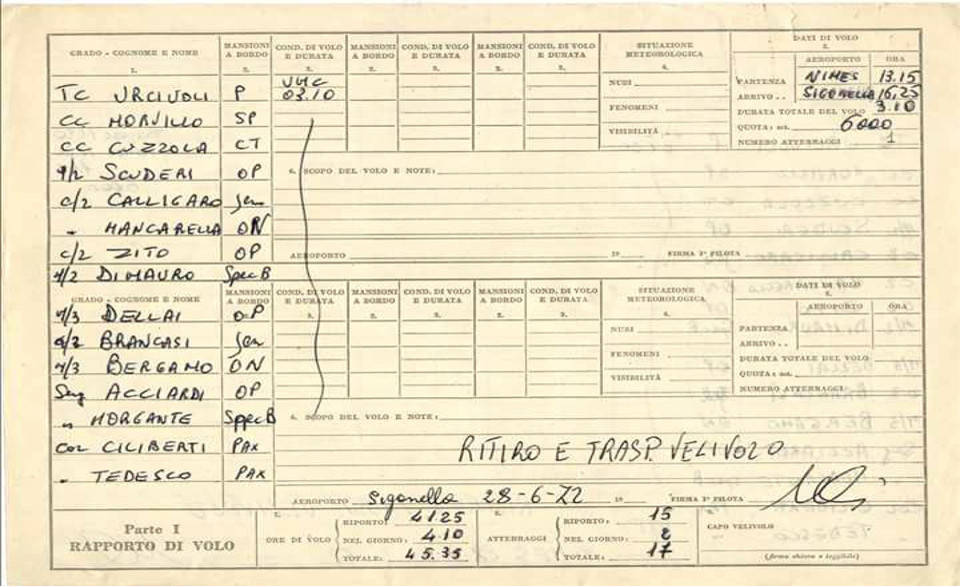 GRADO - COGNOME E NOME MANSIONI A BORDO COND. DI VOLO E DURATA MANSIONI A BORDO COND. DI VOLO E DURATA MANSIONI A BORDO COND. DI VOLO E DURATA SITUAZIONE METEOROLOGICA DATI DI VOLO
1. 2. 3. 2. 3. 2. 3. 4. 5.
AEROPORTO ORA
NUBI PARTENZA NIMES 13.15
TC URCIUOLI P VMC 03.10 ARRIVO . . SIGONELLA 16,25
FENOMENI DURATA TOTALE DEL VOLO 3.10
CC MORVILLO SP QUOTA: mt. 6000
VISIBILITÀ NUMERO ATTERRAGGI 1
CC CUZZOLA CT
M/2 SCUDERI OP 6. SCOPO DEL VOLO E NOTE:
C/2 CALLIGARO
" MANCARELLA ON
C/2 ZITO OP AEROPORTO 19 FIRMA 1° PILOTA
M/2 DIMAURO Spec B
GRADO - COGNOME E NOME MANSIONI A BORDO COND. DI VOLO E DURATA MANSIONI A BORDO COND. DI VOLO E DURATA MANSIONI A BORDO COND. DI VOLO E DURATA SITUAZIONE METEOROLOGICA DATI DI VOLO
1. 2. 3. 2. 3. 2. 3. 4. 5.
AEROPORTO ORA
M/3 DELLAI OP NUBI PARTENZA
ARRIVO . .
BRANCASI FENOMENI DURATA TOTALE DEL VOLO
M/3 BERGAMO ON QUOTA: mt.
VISIBILITÀ NUMERO ATTERRAGGI
Serg ACCIARDI OP
" MORGANTE Spec B 6. SCOPO DEL VOLO E NOTE:
Col CILIBERTI PAX RITIRO E TRASP. VELIVOLO
" TEDESCO PAX
AEROPORTO Sigonella 28-6-72 19 FIRMA 1° PILOTA
Parte I
RAPPORTO DI VOLO
7. ORE DI VOLO
RIPORTO: 41.25
NEL GIORNO: 4.10
TOTALE: 45.35
8. ATTERRAGGI
RIPORTO: 15
NEL GIORNO: 2
TOTALE: 17
CAPO VELIVOLO
(firma chiara e leggibile)